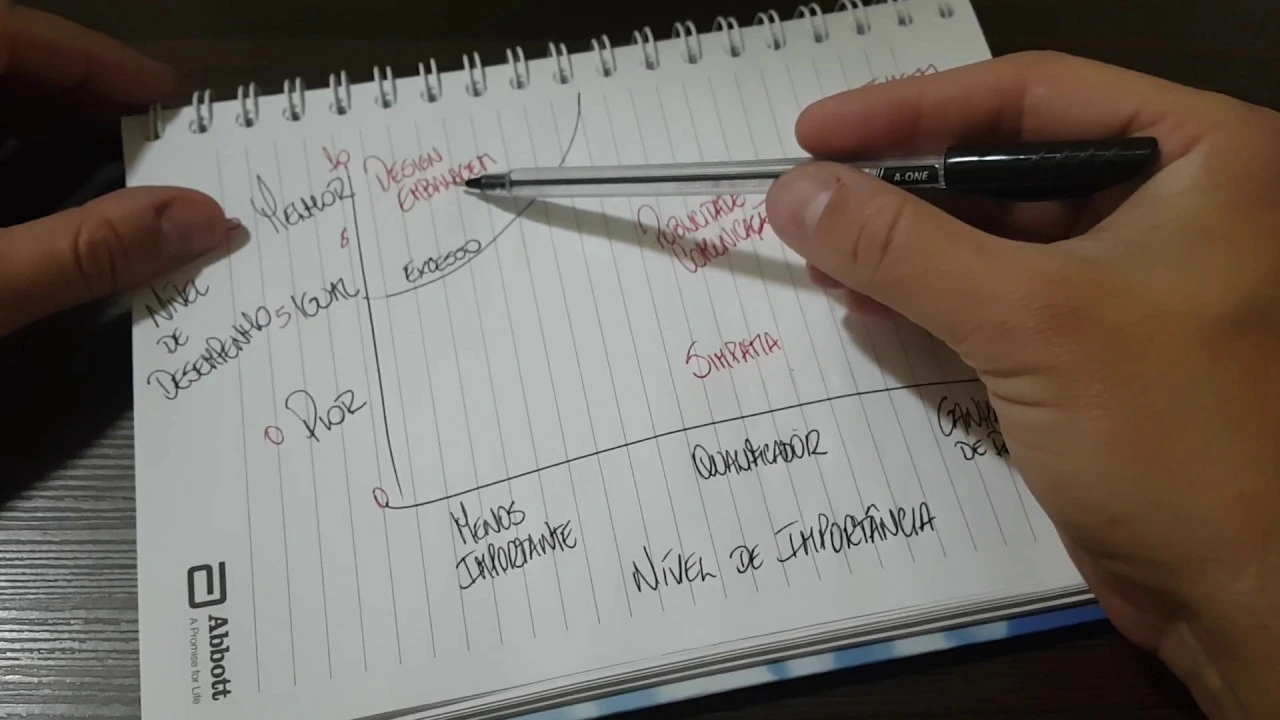 10
DESIGN
EMBALAGEM
MELHOR
8
EXCESSO
PUBLICIDADE
COMUNICAÇÃ
NÍVEL
DE
DESEMPENHO
5 IGUAL
SIMPATIA
0 PIOR
0
MENOS
IMPORTANTE
QUALIFICADOR
DE
NÍVEL DE IMPORTÂNCIA
Abbott
A Promise for Life
A-ONE